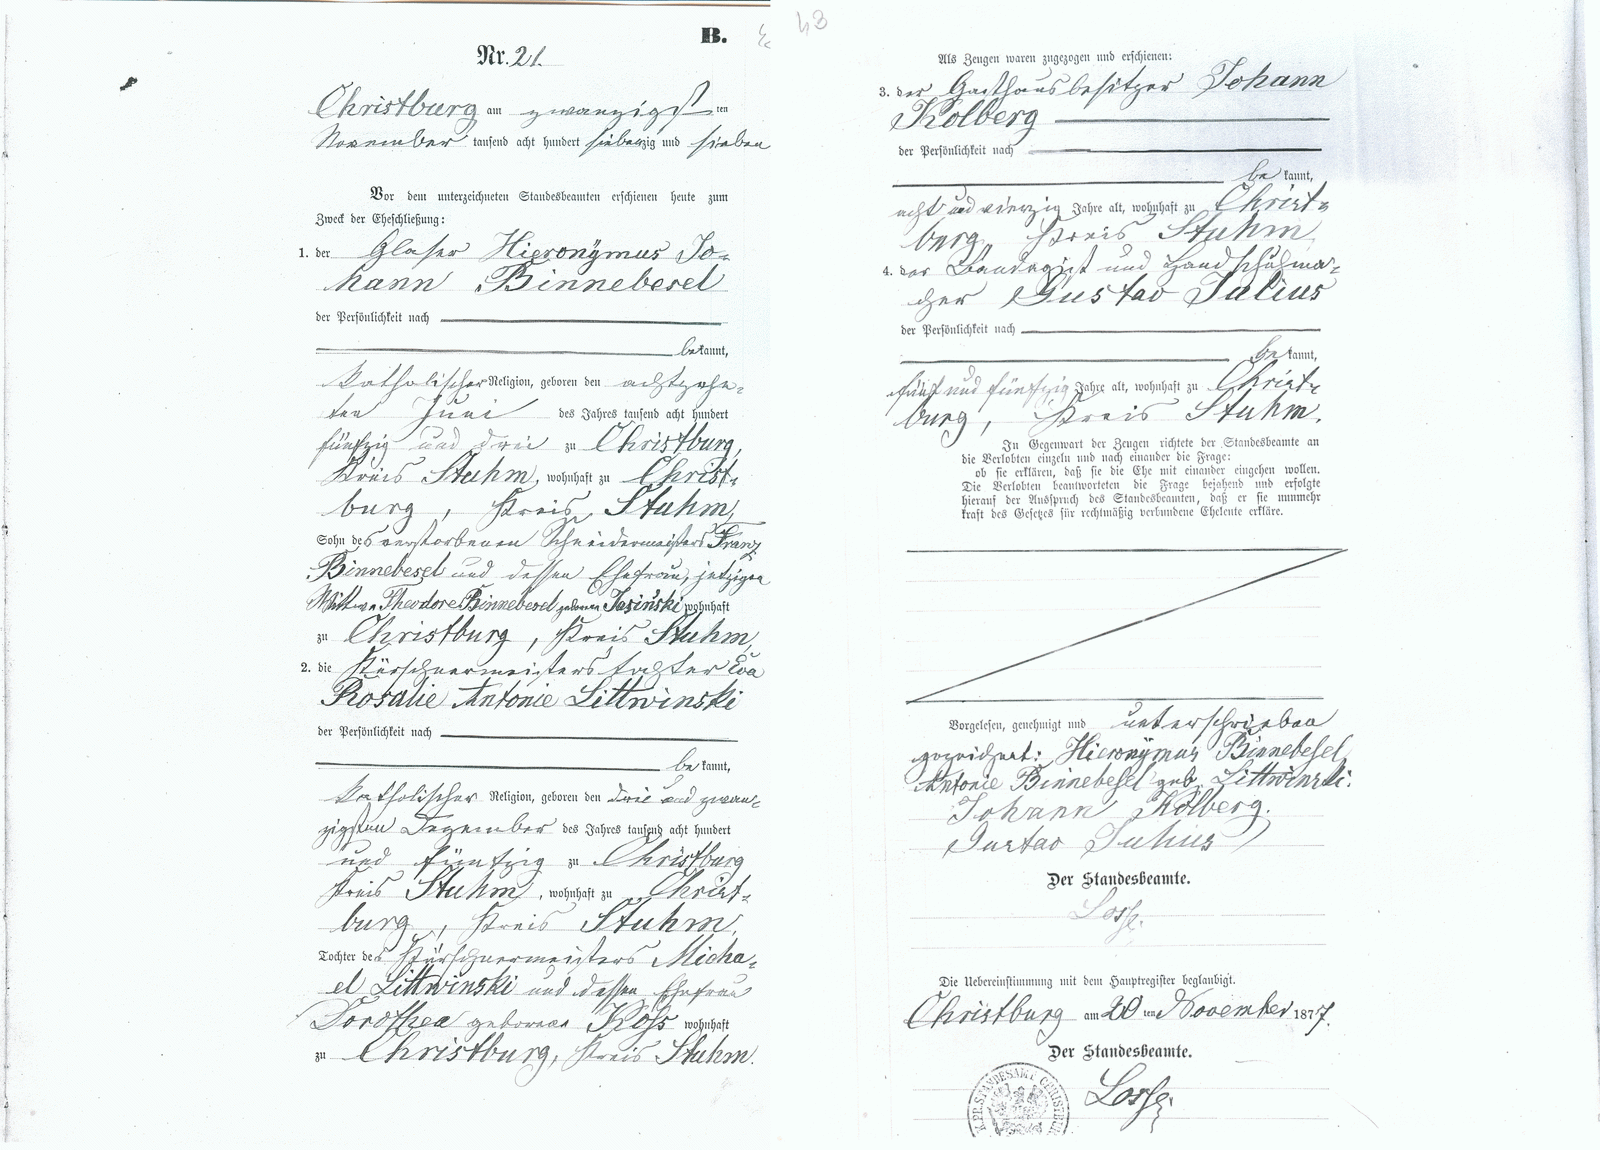 B.
43
Nr. 21.
Christburg am zwanzigsten
November tausend acht hundert siebenzig und sieben
Vor dem unterzeichneten Standesbeamten erschienen heute zum
Zweck der Eheschließung:
1. der Glaser Hieronymus Jo-
hann Binnebesel
der Persönlichkeit nach
bekannt,
katholischer Religion, geboren den achtzehn-
ten Juni des Jahres tausend acht hundert
fünfzig und drei zu Christburg,
Kreis Stuhm, wohnhaft zu Christ-
burg, Kreis Stuhm,
Sohn des verstorbenen Schneidermeisters Franz
Binnebesel und dessen Ehefrau, jetzigen
Wittwe Theodore Binnebesel geboren Jasiński wohnhaft
zu Christburg, Kreis Stuhm,
2. die Kürschnermeisterstochter Eva
Rosalie Antonie Littwinski
der Persönlichkeit nach
bekannt,
katholischer Religion, geboren den drei und zwan-
zigsten Dezember des Jahres tausend acht hundert
und fünfzig zu Christburg
Kreis Stuhm, wohnhaft zu Christ-
burg, Kreis Stuhm,
Tochter des Kürschnermeisters Micha-
el Littwinski und dessen Ehefrau
Dorothea geborene Koss wohnhaft
zu Christburg, Kreis Stuhm.
Als Zeugen waren zugezogen und erschienen:
3. der Gasthausbesitzer Johann
Kolberg
der Persönlichkeit nach
bekannt,
acht und vierzig Jahre alt, wohnhaft zu Christ-
burg, Kreis Stuhm
4. der Bandagist und Handschuhma-
cher Gustav Julius
der Persönlichkeit nach
bekannt,
fünf und fünfzig Jahre alt, wohnhaft zu Christ-
burg, Kreis Stuhm.
In Gegenwart der Zeugen richtete der Standesbeamte an
die Verlobten einzeln und nach einander die Frage:
ob sie erklären, daß sie die Ehe mit einander eingehen wollen.
Die Verlobten beantworteten die Frage bejahend und erfolgte
hierauf der Ausspruch des Standesbeamten, daß er sie nunmehr
kraft des Gesetzes für rechtmäßig verbundene Eheleute erkläre.
Vorgelesen, genehmigt und unterschrieben
gezeichnet: Hieronymus Binnebesel
Antonie Binnebesel geb. Littwinski.
Johann Kolberg.
Gustav Julius
Der Standesbeamte.
Die Uebereinstimmung mit dem Hauptregister beglaubigt.
Christburg am 20 ten November 1877.
Der Standesbeamte.
K. PR. STANDESAMT CHRISTBURG